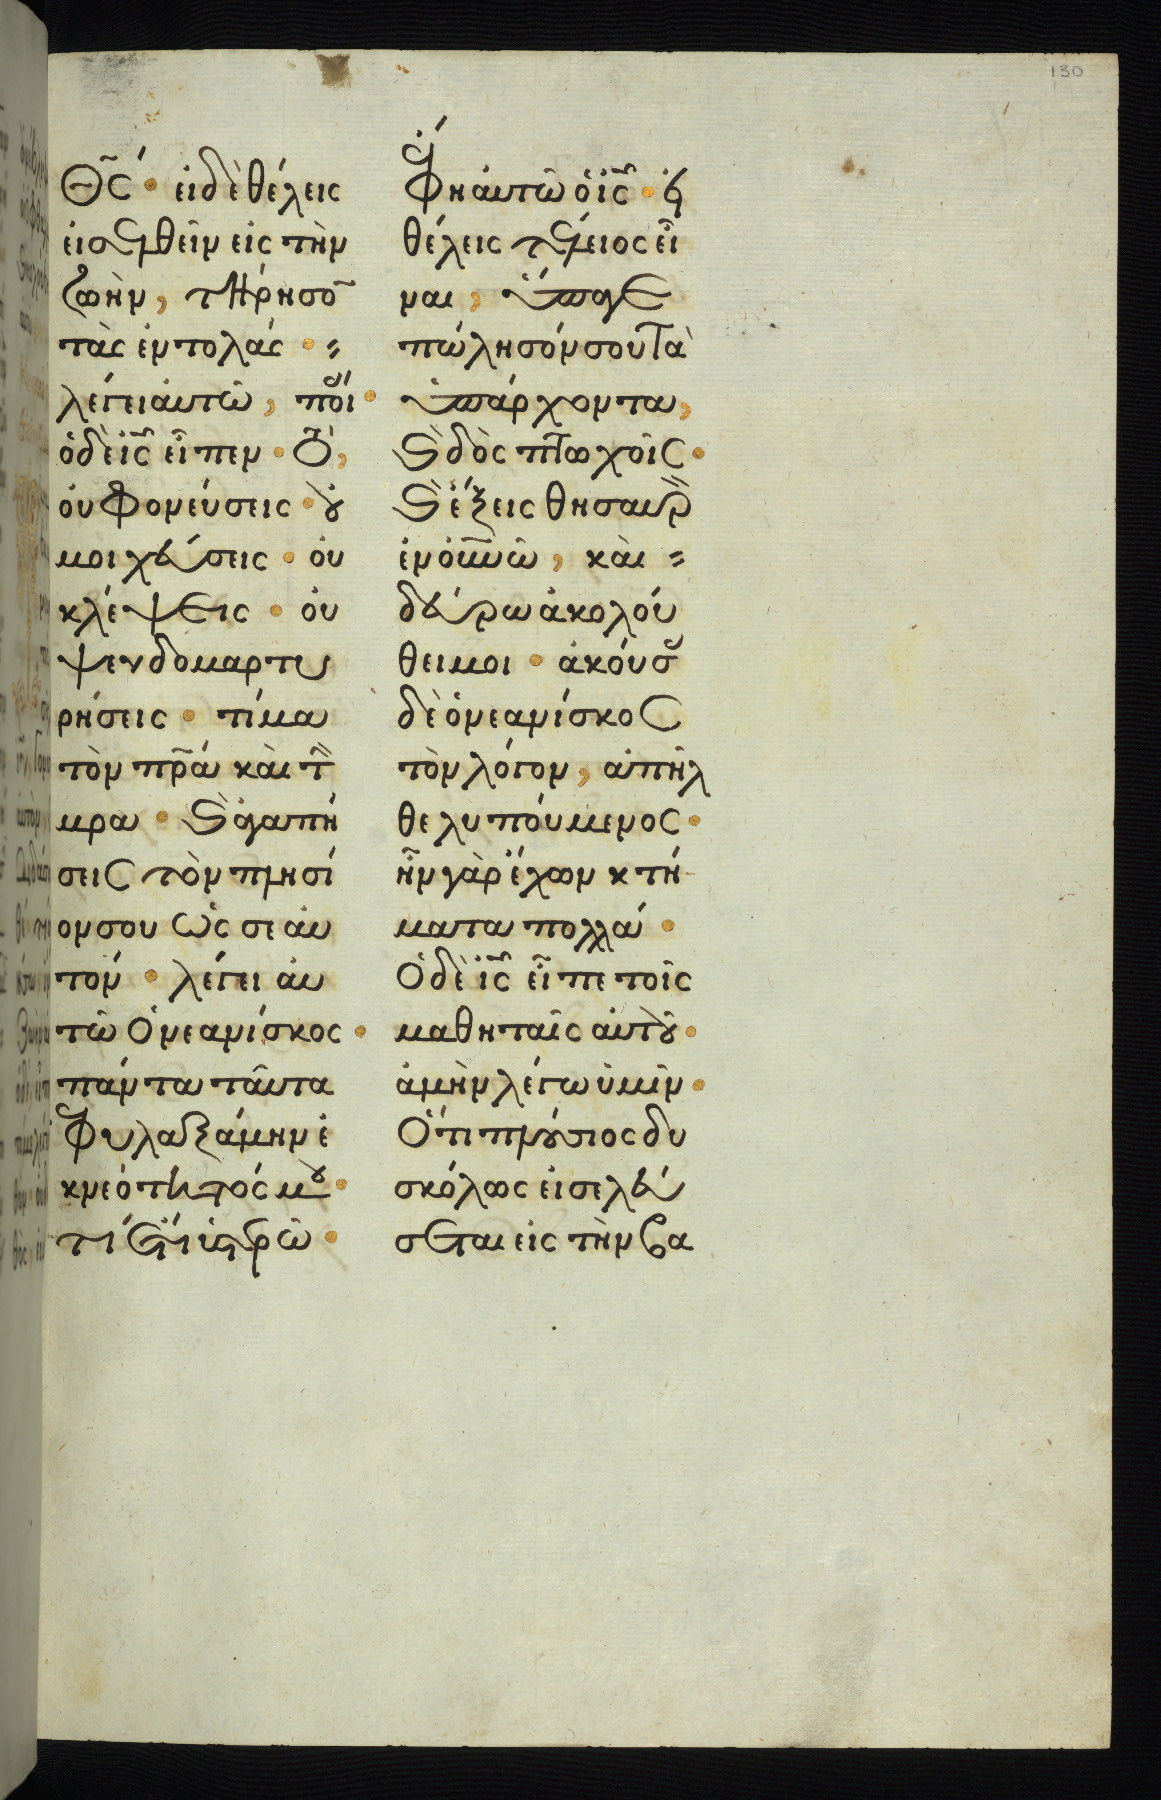 130
Θ̅ς̅· εἰ δὲ θέλεις
εἰσελθεῖν εἰς τὴν
ζωὴν, τήρησο̅
τὰς ἐντολάς·
λέγει αὐτῶ, ποί·
ὁ δὲ ἰ̅ς̅ εἶπεν· Τὸ,
οὐ φονεύσεις· ȣ
μοιχεύσεις· οὐ
κλέψεις· οὐ
ψευδομαρτυ
ρήσεις· τίμα
τὸν π̅ρ̅α καὶ τ̅
μ̅ρ̅α· ϗ ἀγαπή
σεις τὸν πλησί
ον σου ὡς σε αυ
τόν· λέγει αὐ
τῶ ὁ νεανίσκος·
πάντα ταῦτα
ἐφυλαξάμην ἐ
κ νεότητός μȣ·
τί ἔτι ὑστερῶ·
ἔφη αὐτῶ ὁ ἰ̅ς̅· εἰ
θέλεις τέλειος εἶ
ναι, ὕπαγε
πώλησόν σου τὰ
ὑπάρχοντα,
ϗ δὸς πτωχοῖς·
ϗ ἕξεις θησαυρ
ἐν ὀ̅υ̅ν̅ῶ, καὶ
δεύρω ἀκολού
θει μοι· ἀκούσ
δὲ ὁ νεανίσκος
τὸν λόγον, ἀπῆλ
θε λυπούμενος·
ἦν γὰρ ἔχων κτή
ματα πολλά·
Ὁ δὲ ἰ̅ς̅ εἶπε τοῖς
μαθηταῖς αὐτȣ·
ἀμὴν λέγω ὑμῖν·
Ὅτι πλȣσιος δυ
σκόλως εἰσελεύ
σεται εἰς τὴν βα